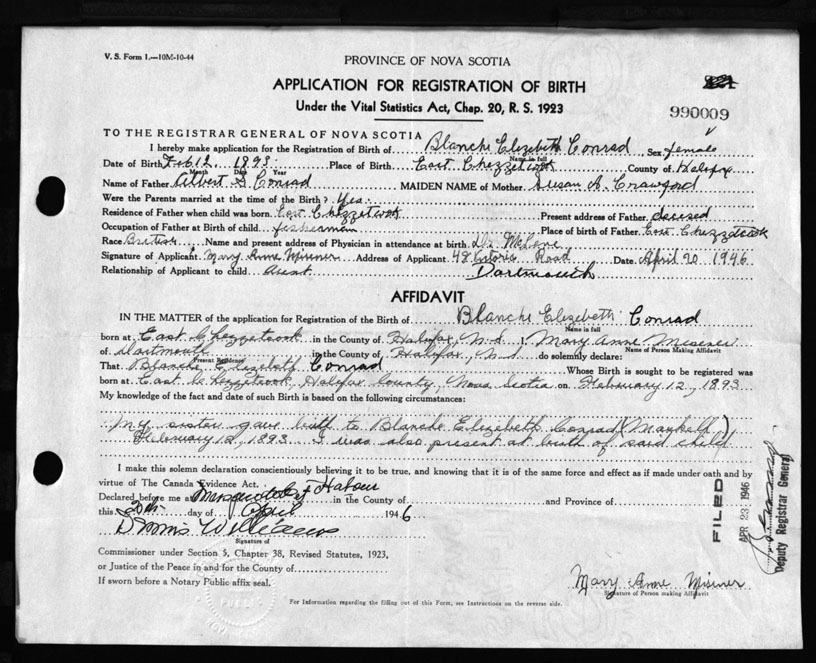 V. S. Form 1.—10M-10-44
PROVINCE OF NOVA SCOTIA
APPLICATION FOR REGISTRATION OF BIRTH
Under the Vital Statistics Act, Chap. 20, R. S. 1923
990009
TO THE REGISTRAR GENERAL OF NOVA SCOTIA
I hereby make application for the Registration of Birth of Blanche Elizabeth Conrad, Sex female
Name in full
Date of Birth Feb 12, 1893 Place of Birth East Chezzetcook County of Halifax
Month Date Year
Name of Father Albert D Conrad MAIDEN NAME of Mother Susan A. Crawford
Were the Parents married at the time of the Birth? Yes.
Residence of Father when child was born East Chezzetcook Present address of Father decised
Occupation of Father at Birth of child fisherman Place of birth of Father East Chezzetcook
Race British Name and present address of Physician in attendance at birth Dr.
Signature of Applicant Mary Anne Misener Address of Applicant 48 Road Date April 20 1946
Relationship of Applicant to child Aunt Dartmouth
AFFIDAVIT
IN THE MATTER of the application for Registration of the Birth of Blanche Elizabeth Conrad
Name in full
born at East Chezzetcook in the County of Halifax, N.S. I, Mary Anne Misener
Name of Person Making Affidavit
of Dartmouth in the County of Halifax, N.S. do solemnly declare:
Present Residence
That Blanche Elizabeth Conrad Whose Birth is sought to be registered was
born at East Chezzetcook, Halifax County, Nova Scotia on February 12, 1893
My knowledge of the fact and date of such Birth is based on the following circumstances:
My sister gave birth to Blanche Elizabeth Conrad
February 12, 1893. I was also present at birth of said child
I make this solemn declaration conscientiously believing it to be true, and knowing that it is of the same force and effect as if made under oath and by
virtue of The Canada Evidence Act.
Declared before me at Musquodoboit Harbour in the County of and Province of
this 20th day of April 1946
Dennis Williams
Signature of
Commissioner under Section 5, Chapter 38, Revised Statutes, 1923,
or Justice of the Peace in and for the County of
If sworn before a Notary Public affix seal.
Mary Anne Misener
Signature of Person making Affidavit
For Information regarding the filling out of this Form, see Instructions on the reverse side.
FILED
APR 23 1946
Deputy Registrar General